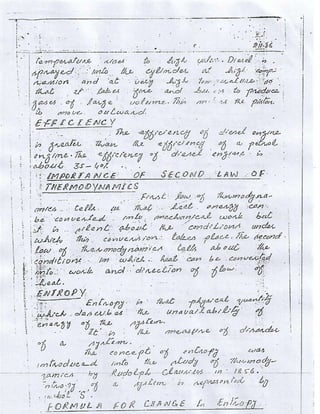 Temperature rises to high value. Diesel is
sprayed into the cylinder at high comp-
ression and at very high temperature so
that it takes fire and burns to produce
gases of large volume. This makes the piston
to move outward.
EFFICIENCY
The efficiency of diesel engine
is greater than the efficiency of a petrol
engine. The efficiency of diesel engine is
about 35-40%.
IMPORTANCE OF SECOND LAW OF
THERMODYNAMICS
First law of thermodyna-
mics tells us that heat energy can
be converted into mechanical work but
it is silent about the conditions under
which this conversion takes place. The second
law of thermodynamics tells about the
conditions in which heat can be converted
into work and direction of flow of
heat.
ENTROPY
Entropy is that physical quantity
which describes the unavailability of
energy of the system.
It is the measure of disorder
of a system.
The concept of entropy was
introduced into the study of thermody-
namics by Rudolph Clausius in 1856.
Entropy of a system is represented by
symbol 'S'.
FORMULA FOR CHANGE In Entropy